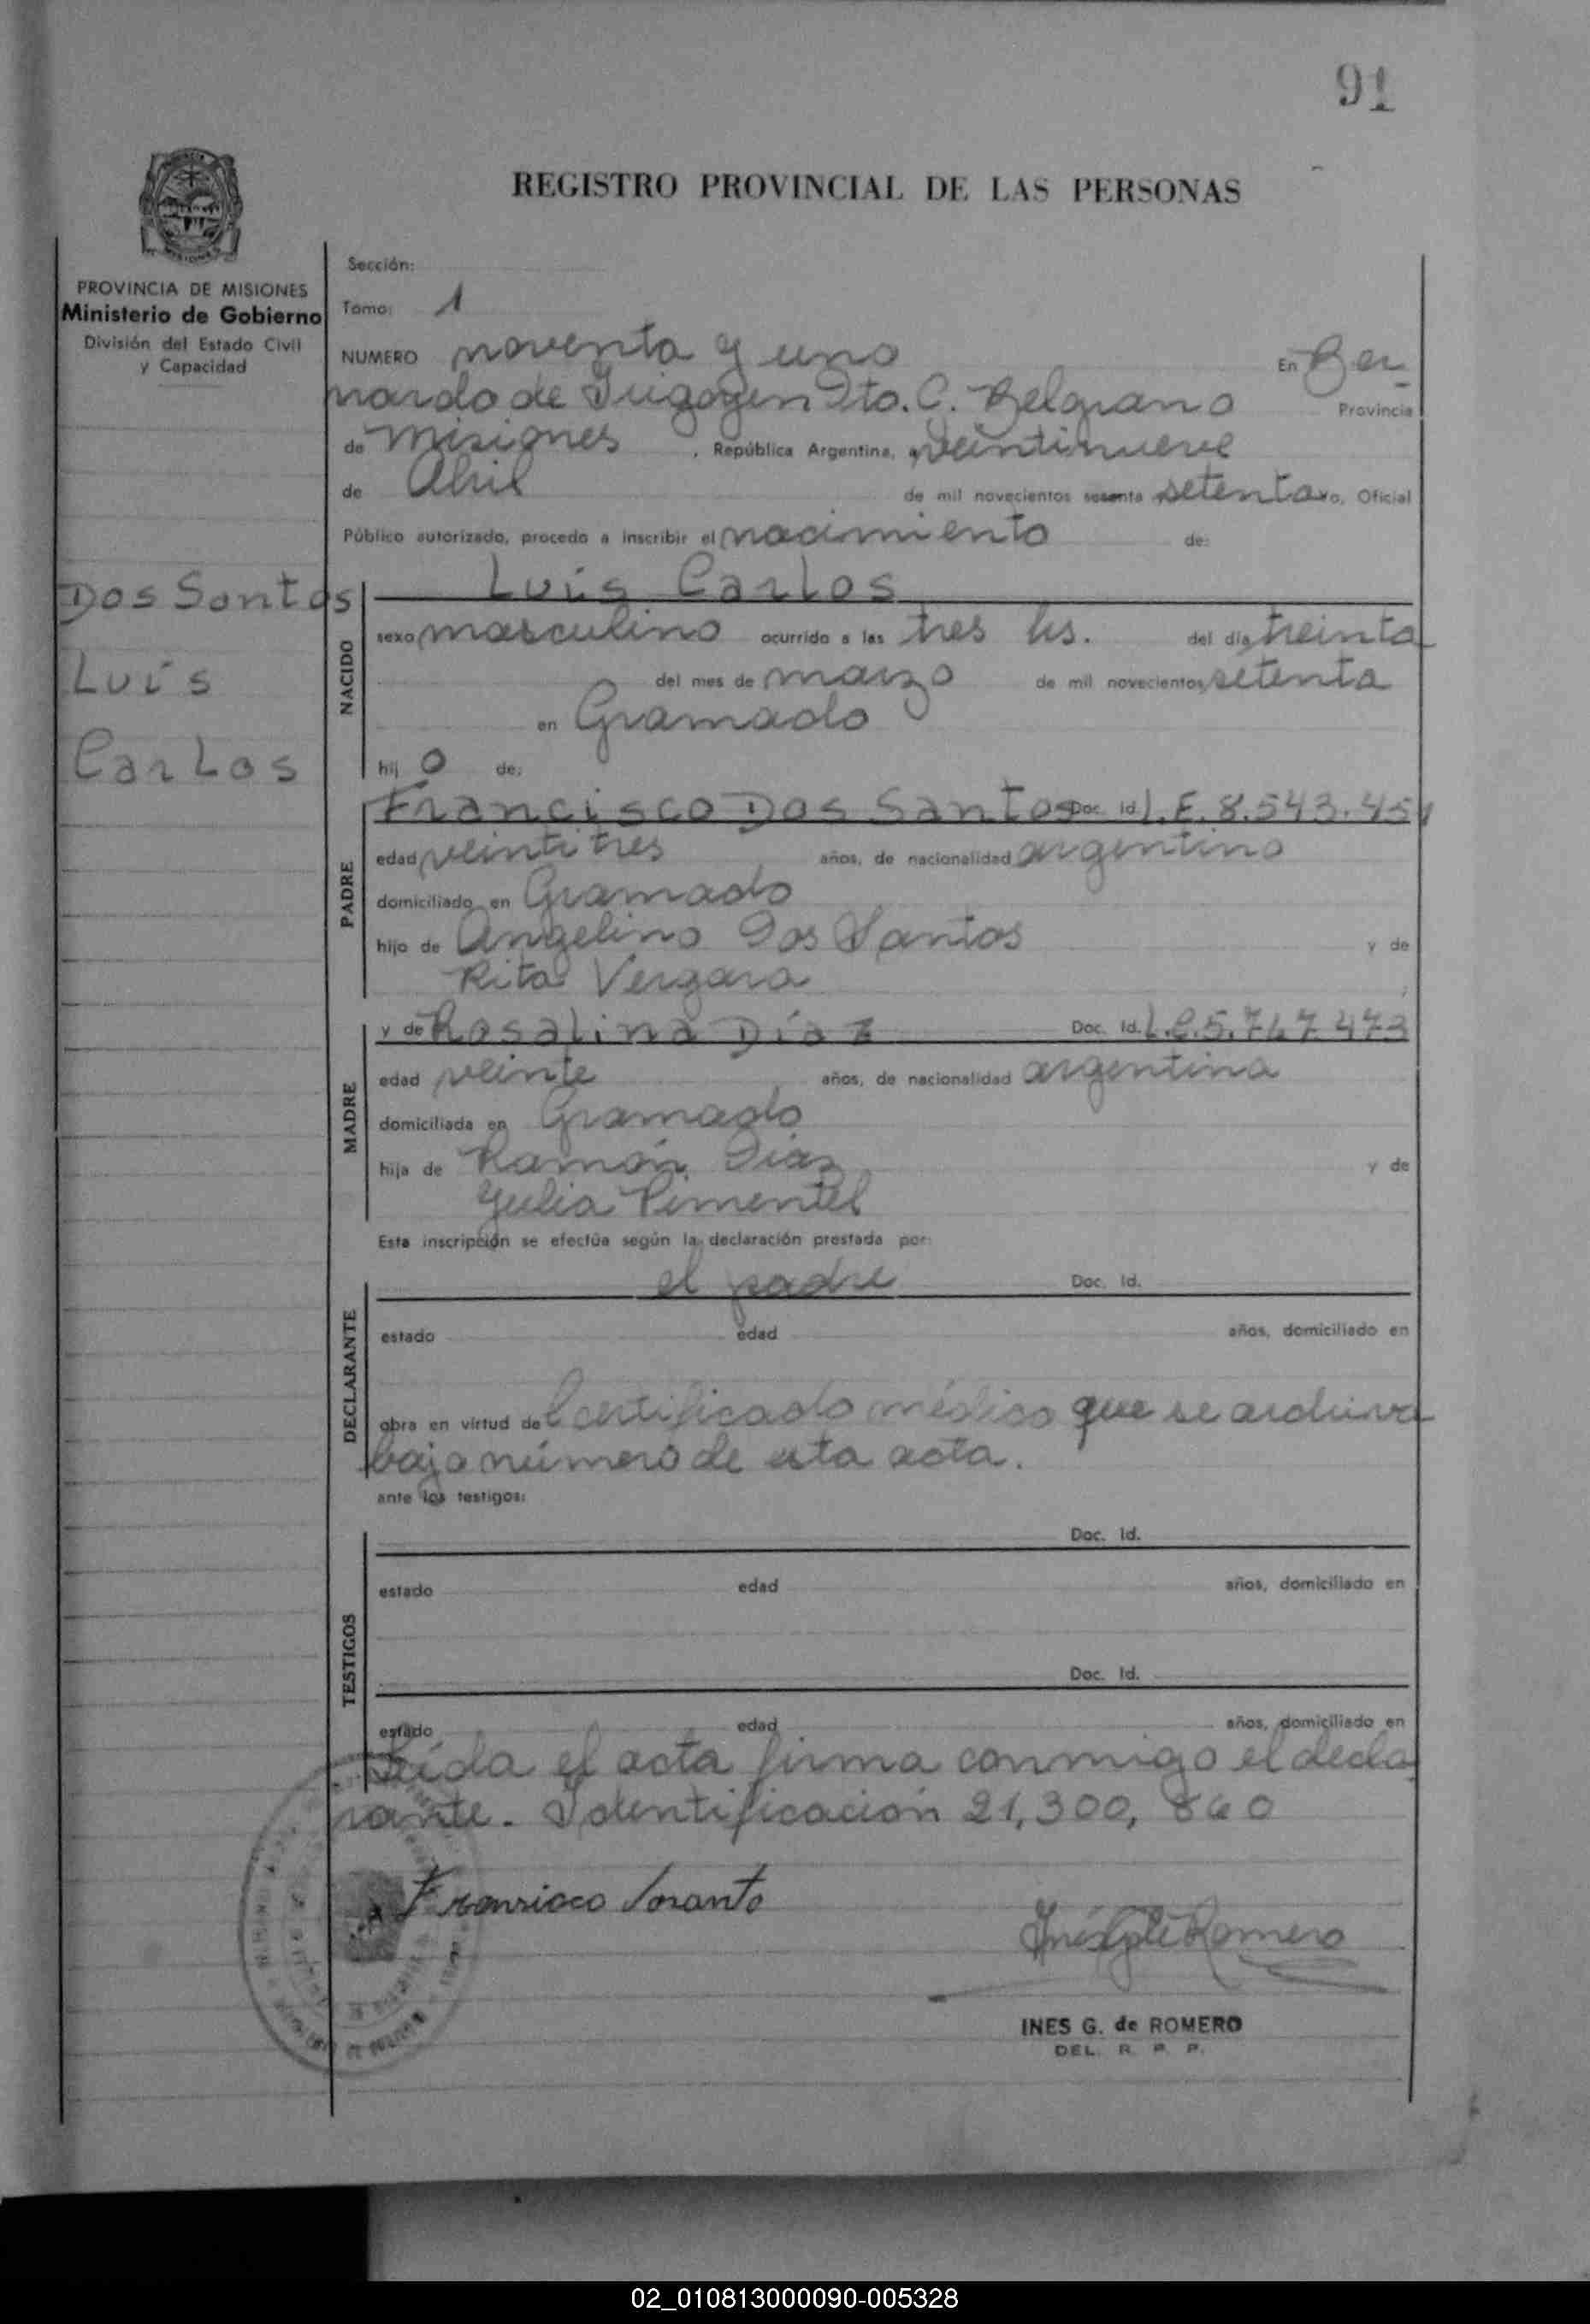 91
REGISTRO PROVINCIAL DE LAS PERSONAS
PROVINCIA DE MISIONES
Ministerio de Gobierno
División del Estado Civil
y Capacidad
Dos Santos
Luis
Carlos
Sección:
Tomo: 1
NUMERO noventa y uno En Ber-
nardo de Irigoyen Dto. G. Belgrano Provincia
de Misiones, República Argentina, a veintinueve
de Abril de mil novecientos sesenta setenta yo, Oficial
Público autorizado, procedo a inscribir el nacimiento de:
Luis Carlos
NACIDO
sexo masculino ocurrido a las tres hs. del día treinta
del mes de marzo de mil novecientos setenta
en Gramado
hij o de:
PADRE
Francisco Dos Santos Doc. Id. L.E. 8.543.451
edad veintitres años, de nacionalidad argentino
domiciliado en Gramado
hijo de Angelino Dos Santos y de
Rita Vergara ;
MADRE
y de Rosalina Díaz Doc. Id. L.C. 473
edad veinte años, de nacionalidad argentina
domiciliada en Gramado
hija de Ramón Díaz y de
Julia Pimentel
Esta inscripción se efectúa según la declaración prestada por:
DECLARANTE
el padre Doc. Id.
estado edad años, domiciliado en
obra en virtud del certificado médico que se archiva
bajo número de esta acta.
ante los testigos:
TESTIGOS
Doc. Id.
estado edad años, domiciliado en
Doc. Id.
estado edad años, domiciliado en
Leída el acta firma conmigo el decla
rante. Identificación 21,300, 860
INES G. de ROMERO
DEL. R. P. P.
02_010813000090-005328